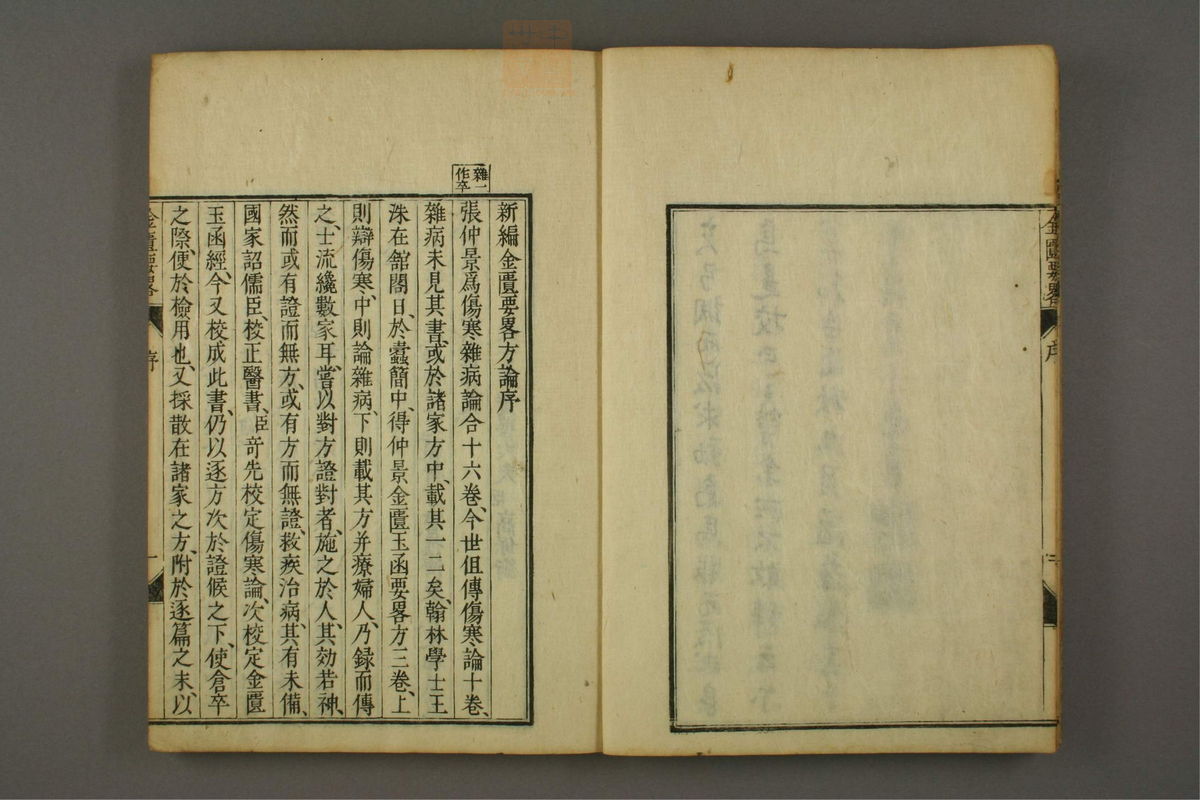 金匱要畧
序
雜一
作卒
新編金匱要畧方論序
張仲景爲傷寒雜病論合十六卷、今世但傳傷寒論十卷、
雜病未見其書、或於諸家方中、載其一二矣、翰林學士王
洙在舘閣日、於蠹簡中、得仲景金匱玉函要畧方三卷、上
則辯傷寒、中則論雜病、下則載其方并療婦人、乃録而傳
之、士流纔數家耳、嘗以對方證對者、施之於人、其効若神、
然而或有證而無方、或有方而無證、救疾治病、其有未備、
國家詔儒臣、校正醫書、臣奇先校定傷寒論、次校定金匱
玉函經、今又校成此書、仍以逐方次於證候之下、使倉卒
之際、便於檢用也、又採散在諸家之方、附於逐篇之末、以
金匱要畧
序
一